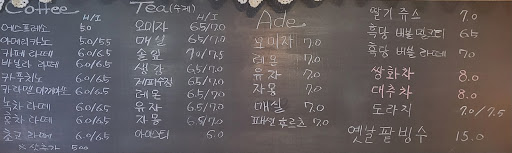 Coffee H/I
에스프레소 5.0
아메리카노 5.0/5.5
카페 라떼 6.0/6.5
바닐라 라떼 6.0/6.5
카푸치노 6.0/6.5
카라멜 마끼아또 6.0/6.5
녹차 라떼 6.0/6.5
홍차 라떼 6.0/6.5
초코 라떼 6.0/6.5
※ 샷추가 500
Tea(수제) H/I
오미자 6.5/7.0
매실 6.5/7.0
솔잎 7.0/7.5
생강 6.5/7.0
6.5/7.0
레몬 6.5/7.0
유자 6.5/7.0
자몽 6.5/7.0
아이스티 6.0
Ade
오미자 7.0
레몬 7.0
유자 7.0
자몽 7.0
매실 7.0
패션후르츠 7.0
딸기 쥬스 7.0
흑당 버블 밀크티 6.5
흑당 버블 라떼 7.0
쌍화차 8.0
대추차 8.0
도라지 7.0/7.5
옛날 팥빙수 15.0